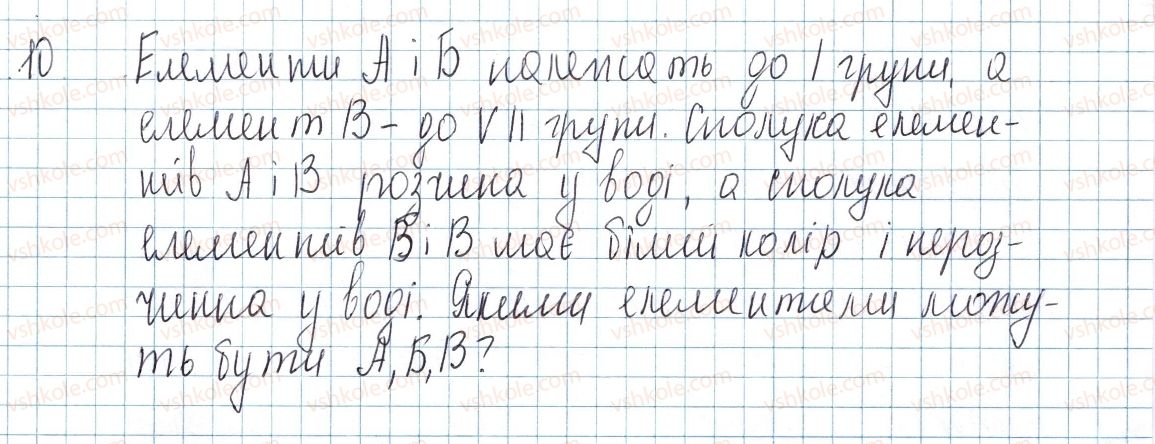 10 Елементи А і Б належать до І групи, а
елемент В – до VII групи. Сполука елемен-
тів А і В розчина у воді, а сполука
елементів Б і В має білий колір і нероз-
чинна у воді. Якими елементами можу-
ть бути А, Б, В?